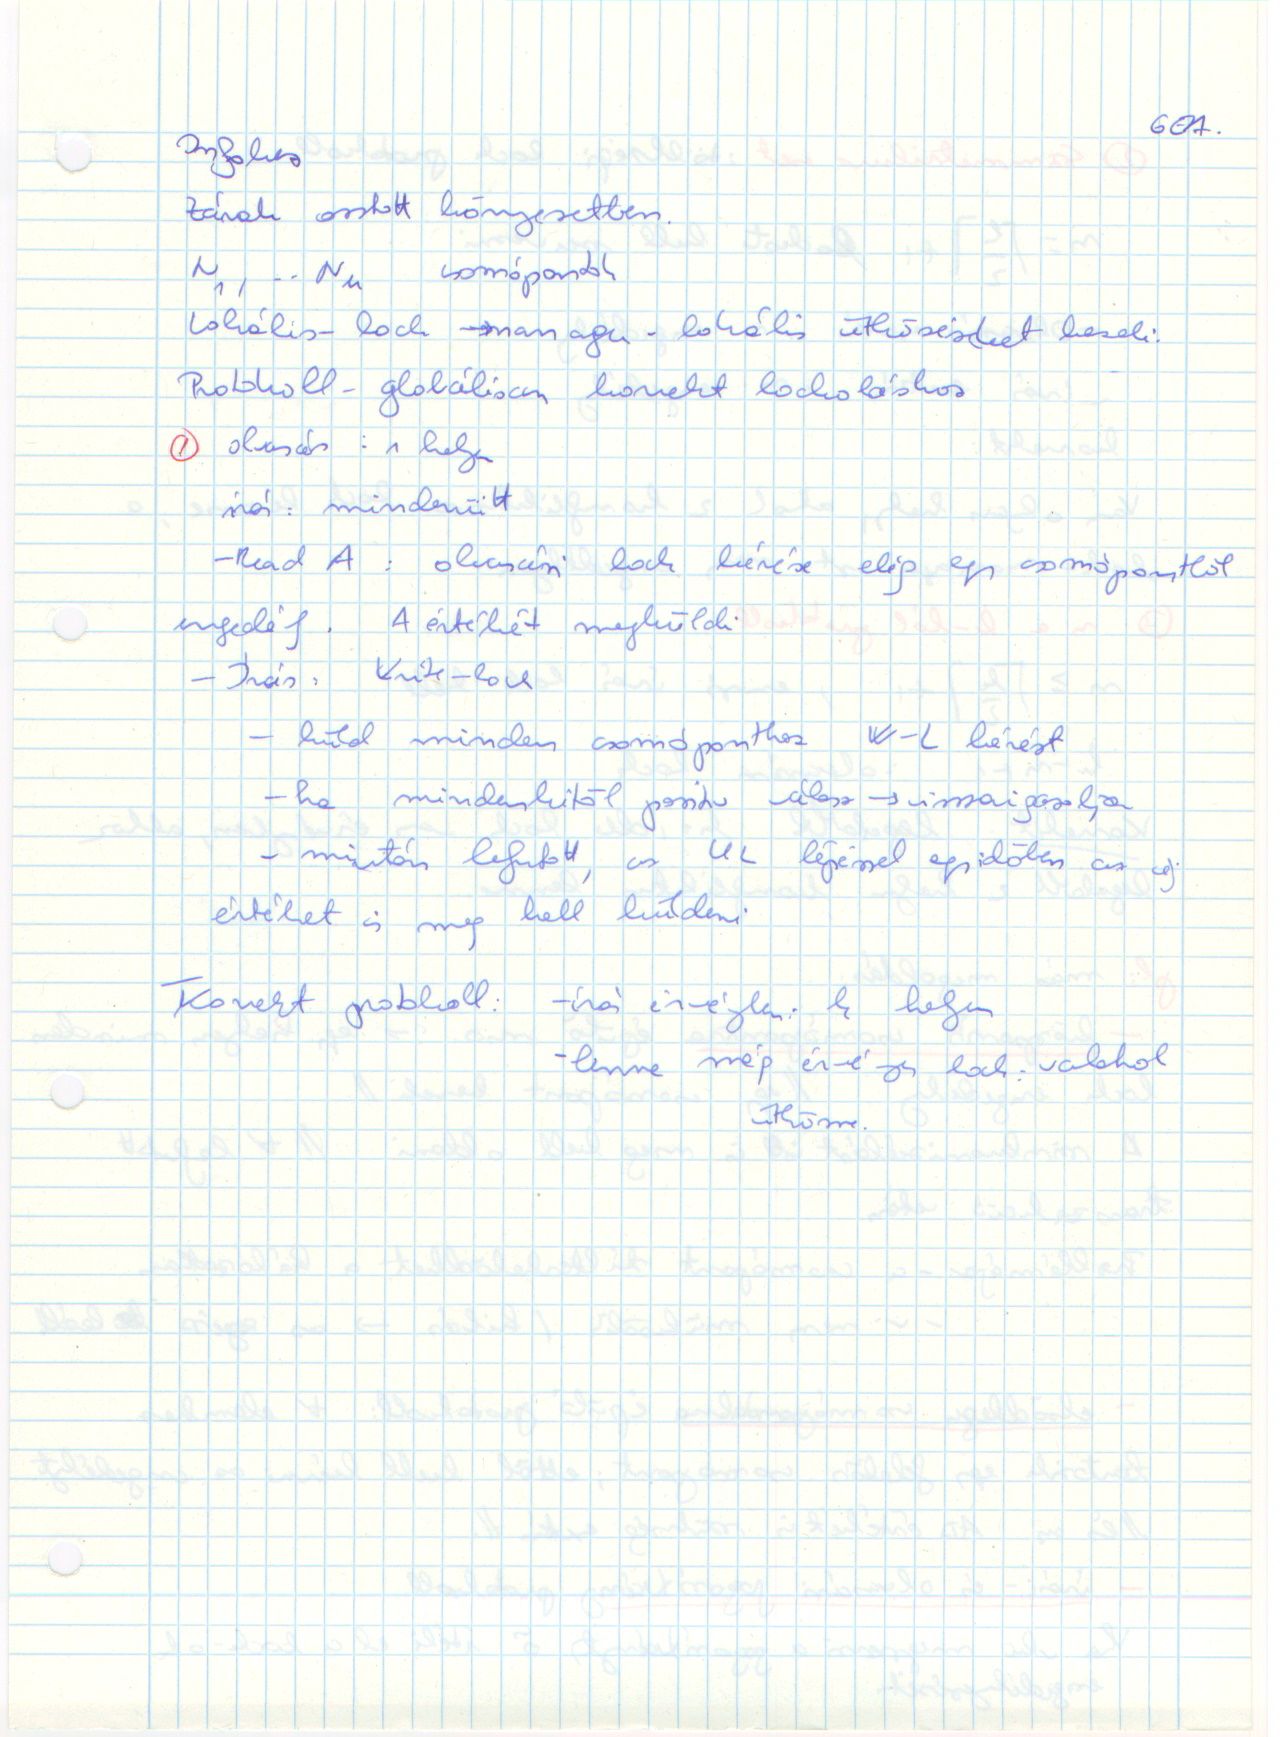 601.
Zárak osztott környezetben.
N1, ... Nk csomópontok
Lokális-lock manager - lokális ütközéseket kezeli.
Protokoll - globálisan korrekt lockoláshoz
① olvasás : 1 helyen
írás : mindenütt
- Read A : olvasási lock kérése elég egy csomóponttól
engedély. A értékét megküldi.
- Írás : Write-lock
- küld minden csomóponthoz W-L kérést
- ha mindenkitől pozitív válasz → visszaigazolja
- miután lefutott, az UL lépéssel egyidőben az új
értéket is meg kell küldeni.
Korrekt protokoll : - írás érvényben : k helyen
- lenne még érvényes lock : valahol
ütközne.